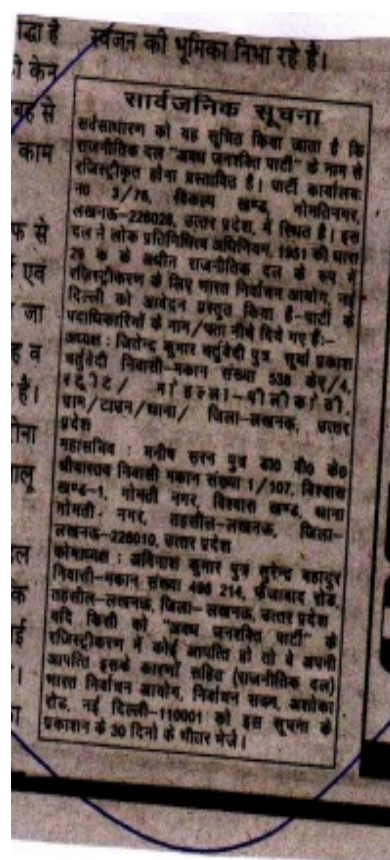 द्धा है
स्वजन की भूमिका निभा रहे है।
केन
से
काम
सार्वजनिक सूचना
सर्वसाधारण को यह सूचित किया जाता है कि
राजनीतिक दल "अवध जनशक्ति पार्टी" के नाम से
रजिस्ट्रीकृत होना प्रस्तावित है। पार्टी कार्यालयः
न0 3/76, विकल्प खण्ड, गोमतिनगर,
लखनऊ-226028, उत्तर प्रदेश, में स्थित है। इस
दल ने लोक प्रतिनिधित्व अधिनियम, 1951 की धारा
29 क के अधीन राजनीतिक दल के रूप में
रजिस्ट्रीकरण के लिए भारत निर्वाचन आयोग, नई
दिल्ली को आवेदन प्रस्तुत किया है-पार्टी के
पदाधिकारियों के नाम/पता नीचे दिये गए हैः-
अध्यक्ष : जितेन्द्र कुमार चतुर्वेदी पुत्र सूर्या प्रकाश
चतुर्वेदी निवासी-मकान संख्या 538
स्ट्रीट/ मोहल्ला-
ग्राम/टाउन/थाना/ जिला-लखनऊ, उत्तर
प्रदेश
महासचिव : मनीष सरन पुत्र डा0 वी0 के0
श्रीवास्तव निवासी मकान संख्या 1/107, विश्वास
खण्ड-1, गोमती नगर, विश्वास खण्ड, थाना
गोमती- नगर, तहसील-लखनऊ, जिला-
लखनऊ-226010, उत्तर प्रदेश
कोषाध्यक्ष : अविनाश कुमार पुत्र सुरेन्द्र बहादुर
निवासी-मकान संख्या 214, फैजाबाद रोड,
तहसील-लखनऊ, जिला- लखनऊ, उत्तर प्रदेश
यदि किसी को "अवध जनशक्ति पार्टी" के
रजिस्ट्रीकरण में कोई आपत्ति हो तो वे अपनी
आपत्ति इसके कारणों सहित (राजनीतिक दल)
भारत निर्वाचन आयोग, निर्वाचन सदन, अशोका
रोड, नई दिल्ली-110001 को इस सूचना के
प्रकाशन के 30 दिनो के भीतर भेजें।